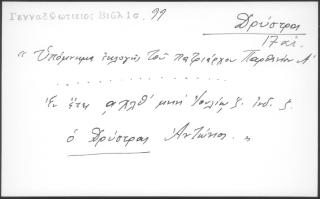 Γενναδ Φωτιείος Βιβλιο. 99
Δρύστρας
17 αἰ.
"Ὑπόμνημα ἐκλογῆς τοῦ πατριάρχου Παρθενίου Α'
. . . . . . . . . . . . . . . .
Ἐν ἔτει ͵αχλθ' μηνὶ Ἰουλίῳ ζ. ἰνδ. ζ.
ὁ Δρύστρας Ἀντώνιος. "